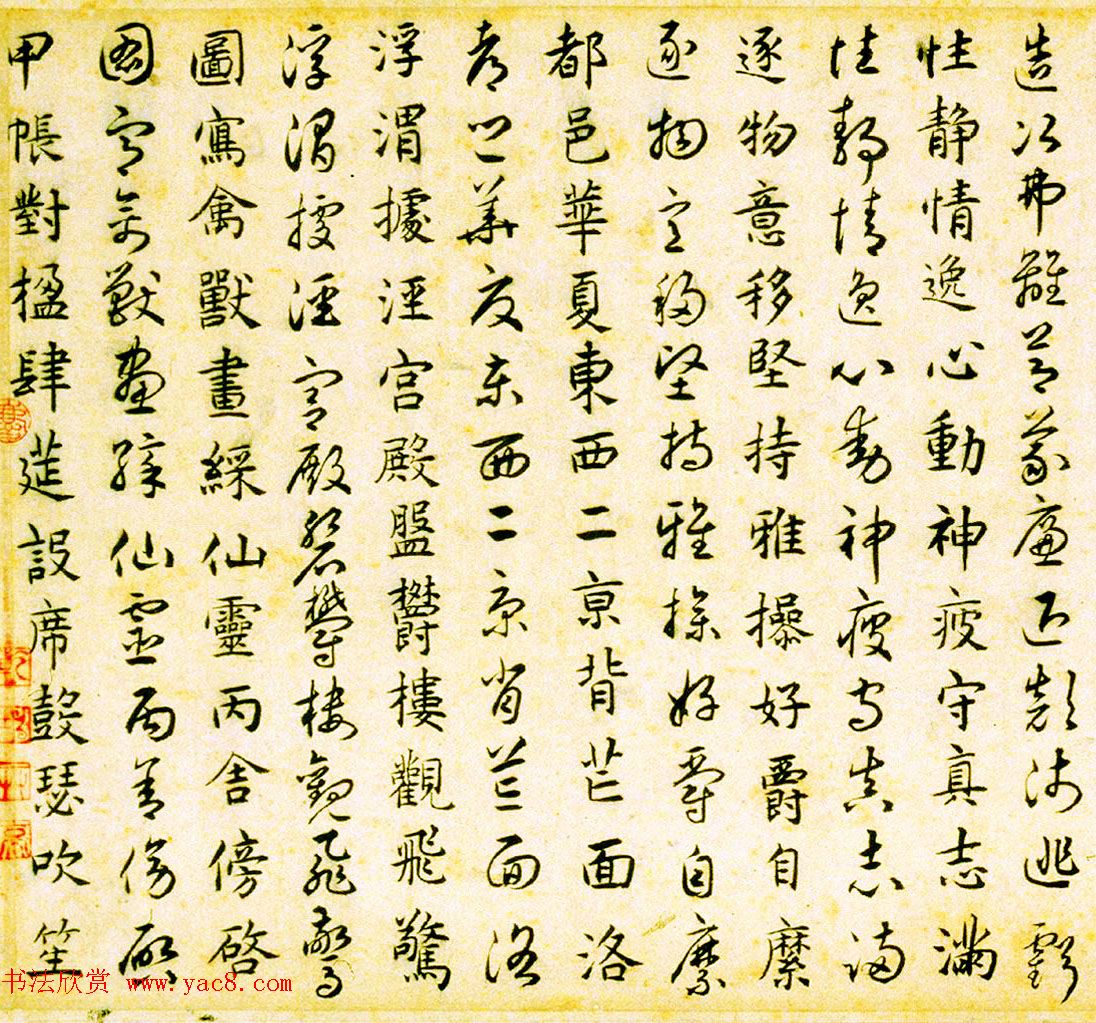 造次弗離節義廉退顛沛匪虧
性静情逸心動神疲守真志滿
性静情逸心動神疲守真志滿
逐物意移堅持雅操好爵自縻
逐物意移堅持雅操好爵自縻
都邑華夏東西二京背芒面洛
都邑華夏東西二京背芒面洛
浮渭據涇宮殿盤鬱樓觀飛驚
浮渭據涇宮殿盤鬱樓觀飛驚
圖寫禽獸畫綵仙靈丙舍傍啓
圖寫禽獸畫綵仙靈丙舍傍啓
甲帳對楹肆筵設席鼓瑟吹笙
书法欣赏 www.yac8.com